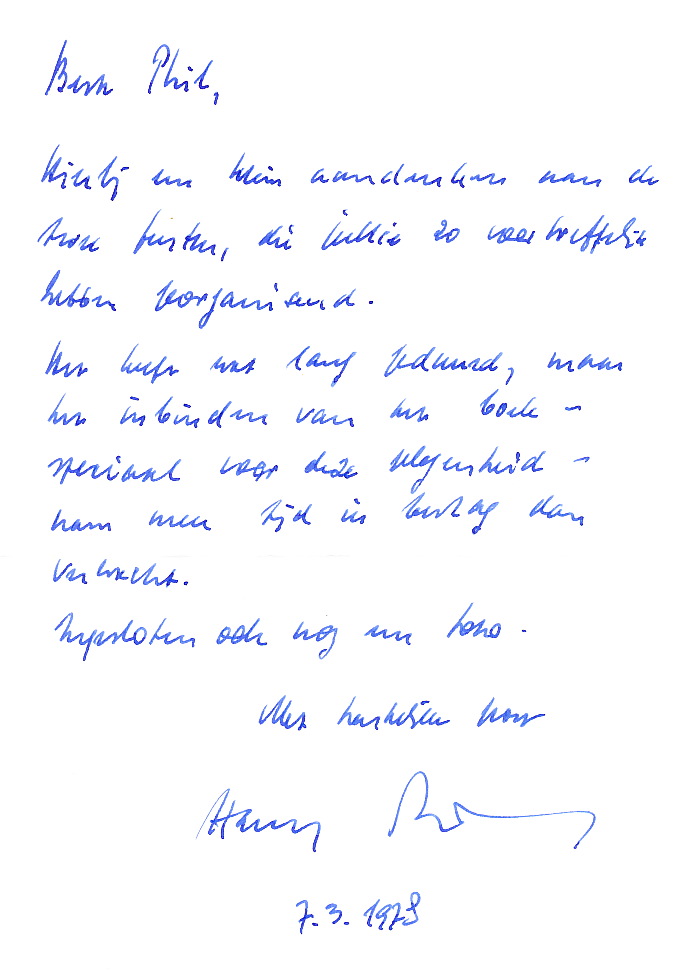 Beste Phil,
Hierbij een klein aandenken aan de
feesten, die jullie zo voortreffelijk
hebben georganiseerd.
Het heeft wat lang geduurd, maar
het inbinden van het boek -
speciaal voor deze gelegenheid -
nam meer tijd in beslag dan
verwacht.
Ingesloten ook nog een foto.
Met hartelijke
7.3.1978